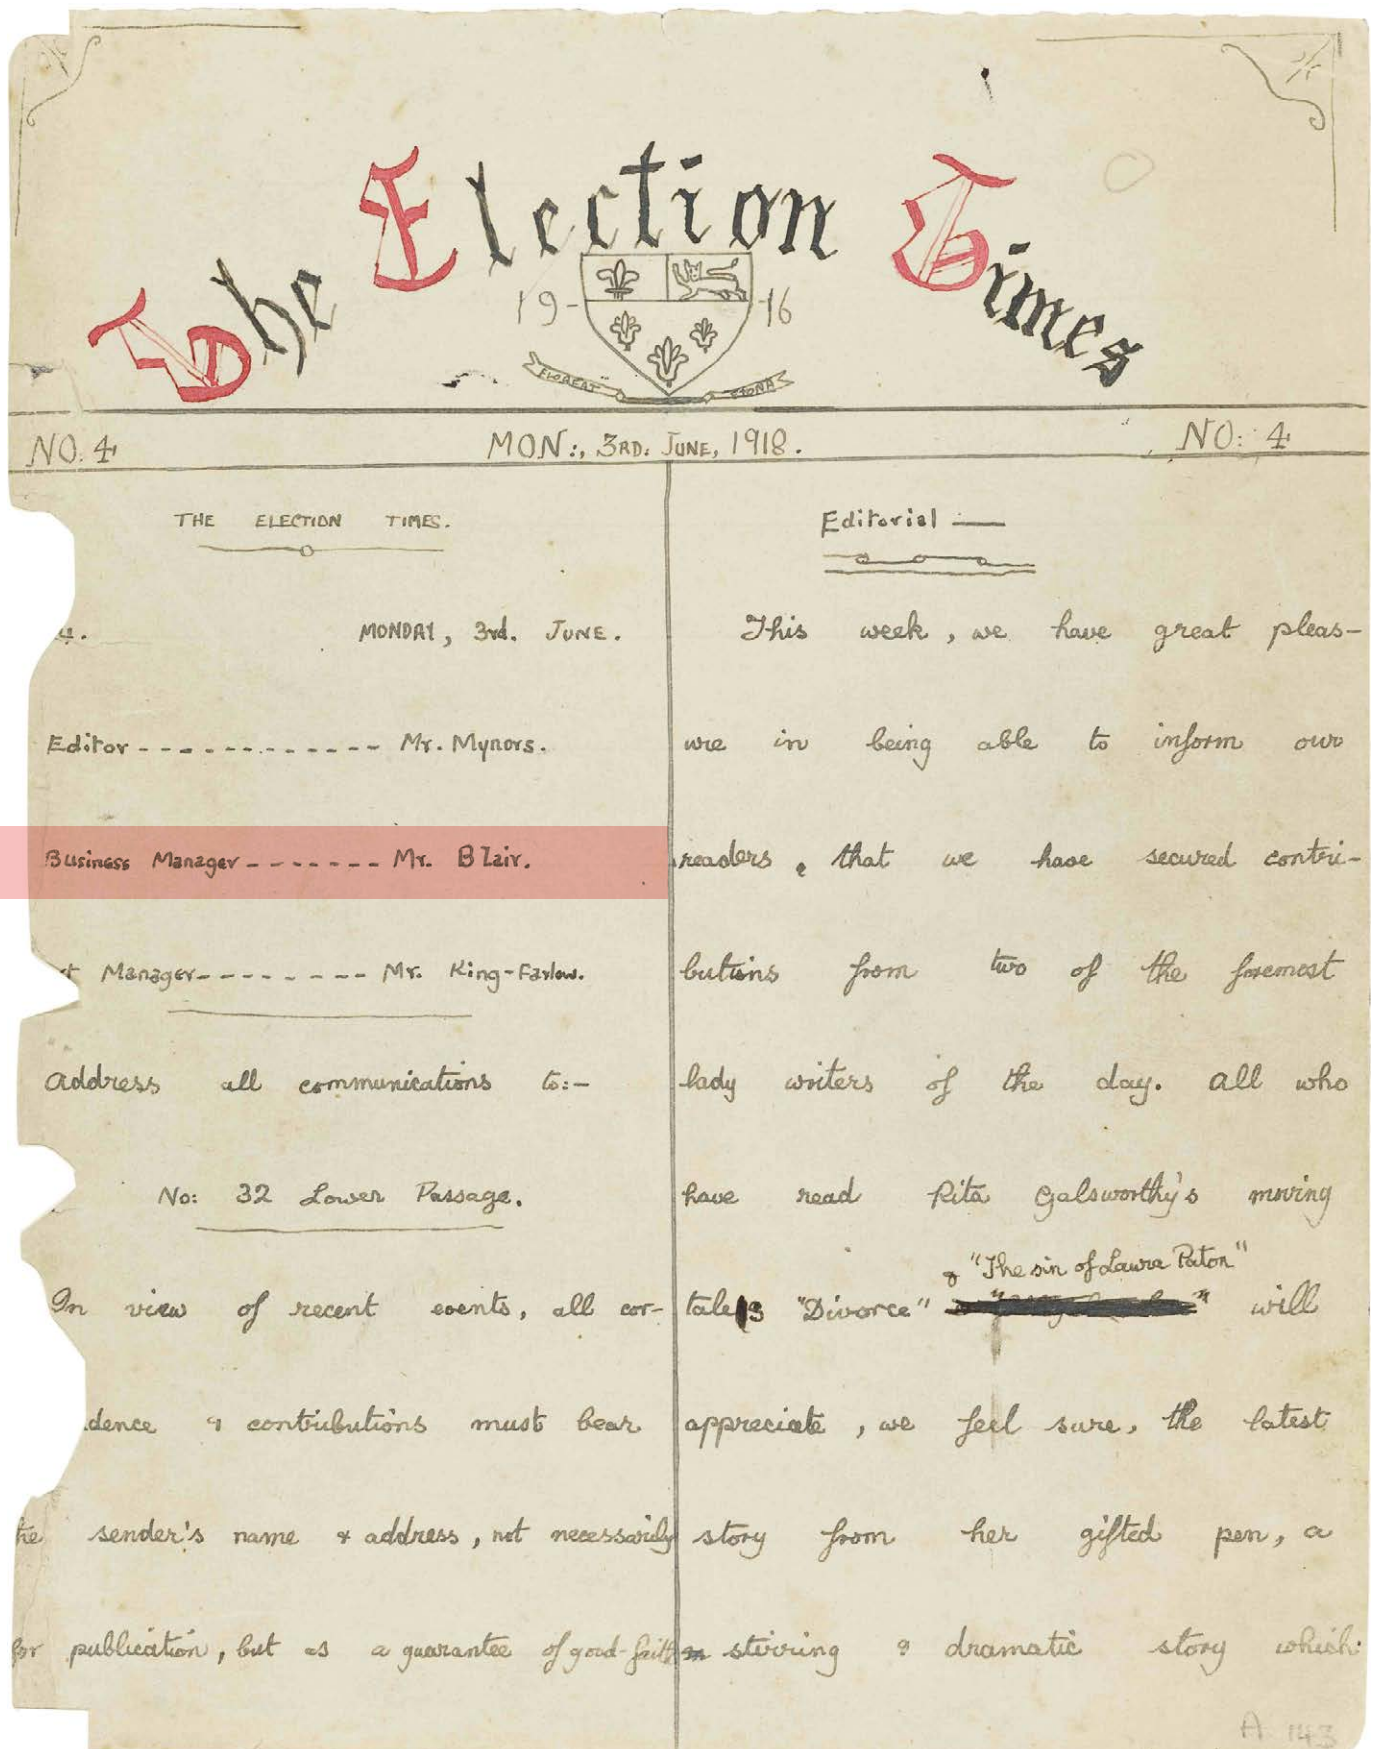 The Election Times
19-
-16
FLOREAT
ETONA
NO. 4
MON:, 3RD. JUNE, 1918.
NO: 4
THE ELECTION TIMES.
4.
MONDAY, 3rd. JUNE.
Editor - - - - - - - - - - - - - Mr. Mynors.
Business Manager - - - - - - - Mr. Blair.
t Manager - - - - - - - - - Mr. King-Farlow.
Address all communications to:-
No: 32 Lower Passage.
In view of recent events, all cor-
dence & contributions must bear
he sender's name & address, not necessarily
for publication, but as a guarantee of good-faith
Editorial —
This week, we have great pleas-
ure in being able to inform our
readers, that we have secured contri-
butions from two of the foremost
lady writers of the day. All who
have read Rita Galsworthy's moving
& "The sin of Laura Paton"
tales "Divorce" will
appreciate, we feel sure, the latest
story from her gifted pen, a
stirring & dramatic story which
A 143